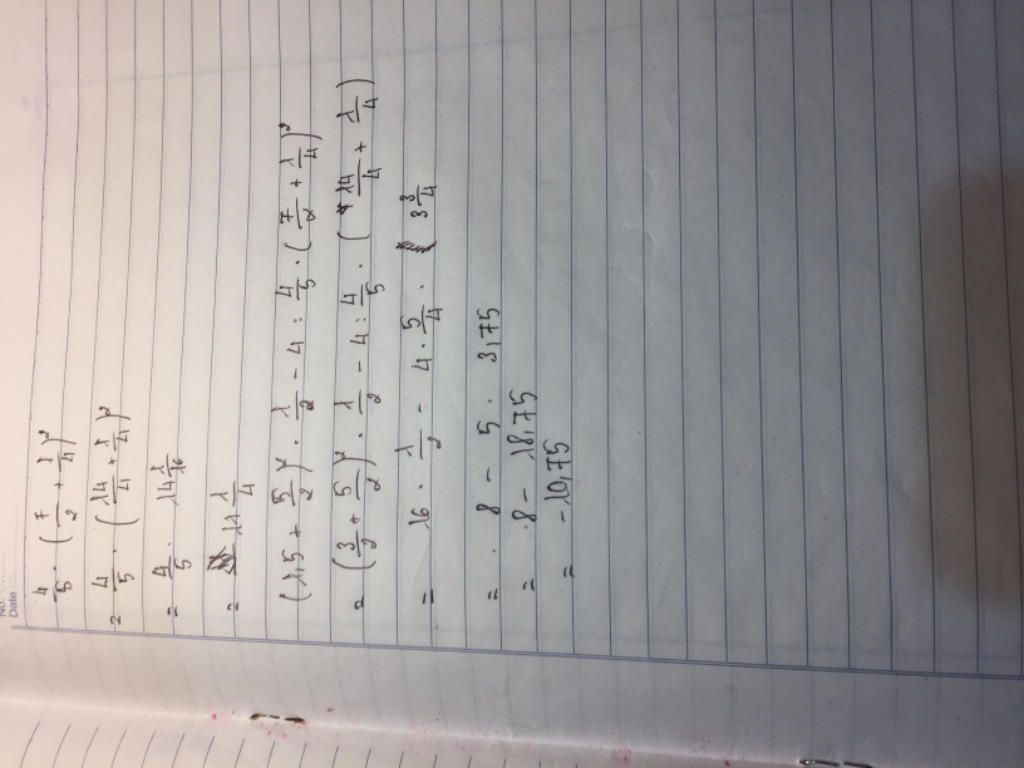 No.
Date
4/5 · (7/2 + 1/4)²
= 4/5 · (14/4 + 1/4)²
= 4/5 · 14 1/16
= 11 1/4
(1,5 + 5/2)² · 1/2 - 4 : 4/5 · (7/2 + 1/4)²
= (3/2 + 5/2)² · 1/2 - 4 : 4/5 · (14/4 + 1/4)
= 16 · 1/2 - 4 · 5/4 · 3 3/4
= · 8 - 5 · 3,75
= · 8 - 18,75
= -10,75